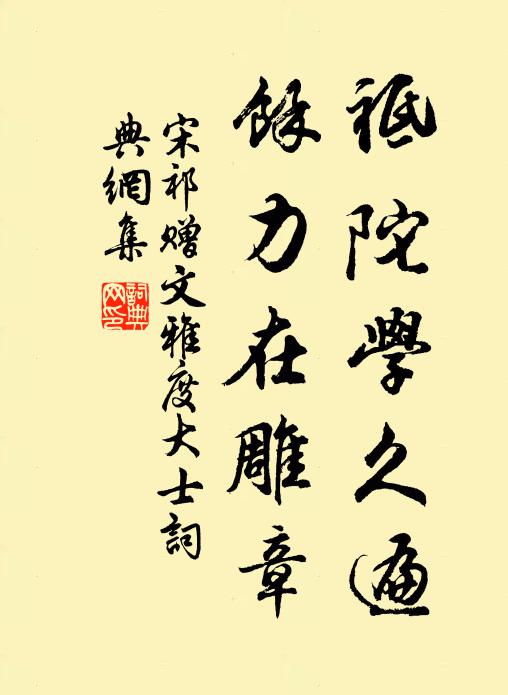 祗陀學久遍
餘力在雕章
宋祁贈文雅度大士詞
典網集
詞典
网印